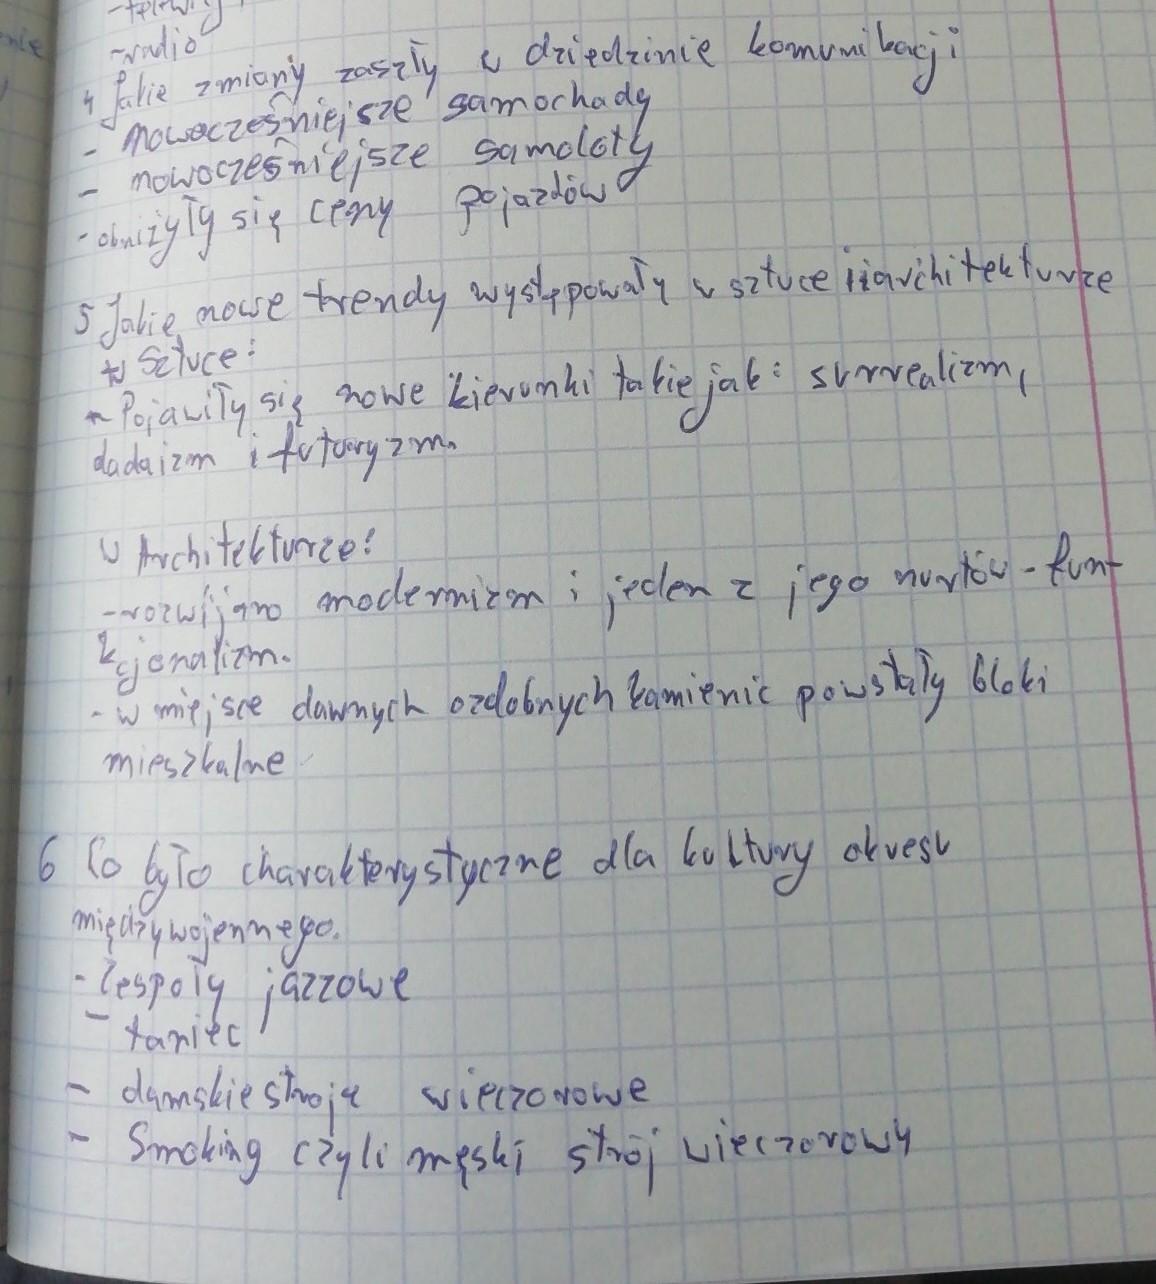 -radio
4 Jakie zmiany zaszły w dziedzinie komunikacji
- nowocześniejsze samochody
- nowocześniejsze samoloty
- obniżyły się ceny pojazdów
5 Jakie nowe trendy występowały w sztuce i architekturze
w Sztuce:
- Pojawiły się nowe kierunki takie jak: surrealizm,
dadaizm i futuryzm.
w Architekturze:
- rozwijano modernizm i jeden z jego nurtów - fun-
kcjonalizm.
- w miejsce dawnych ozdobnych kamienic powstały bloki
mieszkalne
6 Co było charakterystyczne dla kultury okresu
międzywojennego.
- zespoły jazzowe
- taniec
- damskie stroje wieczorowe
- Smoking czyli męski strój wieczorowy